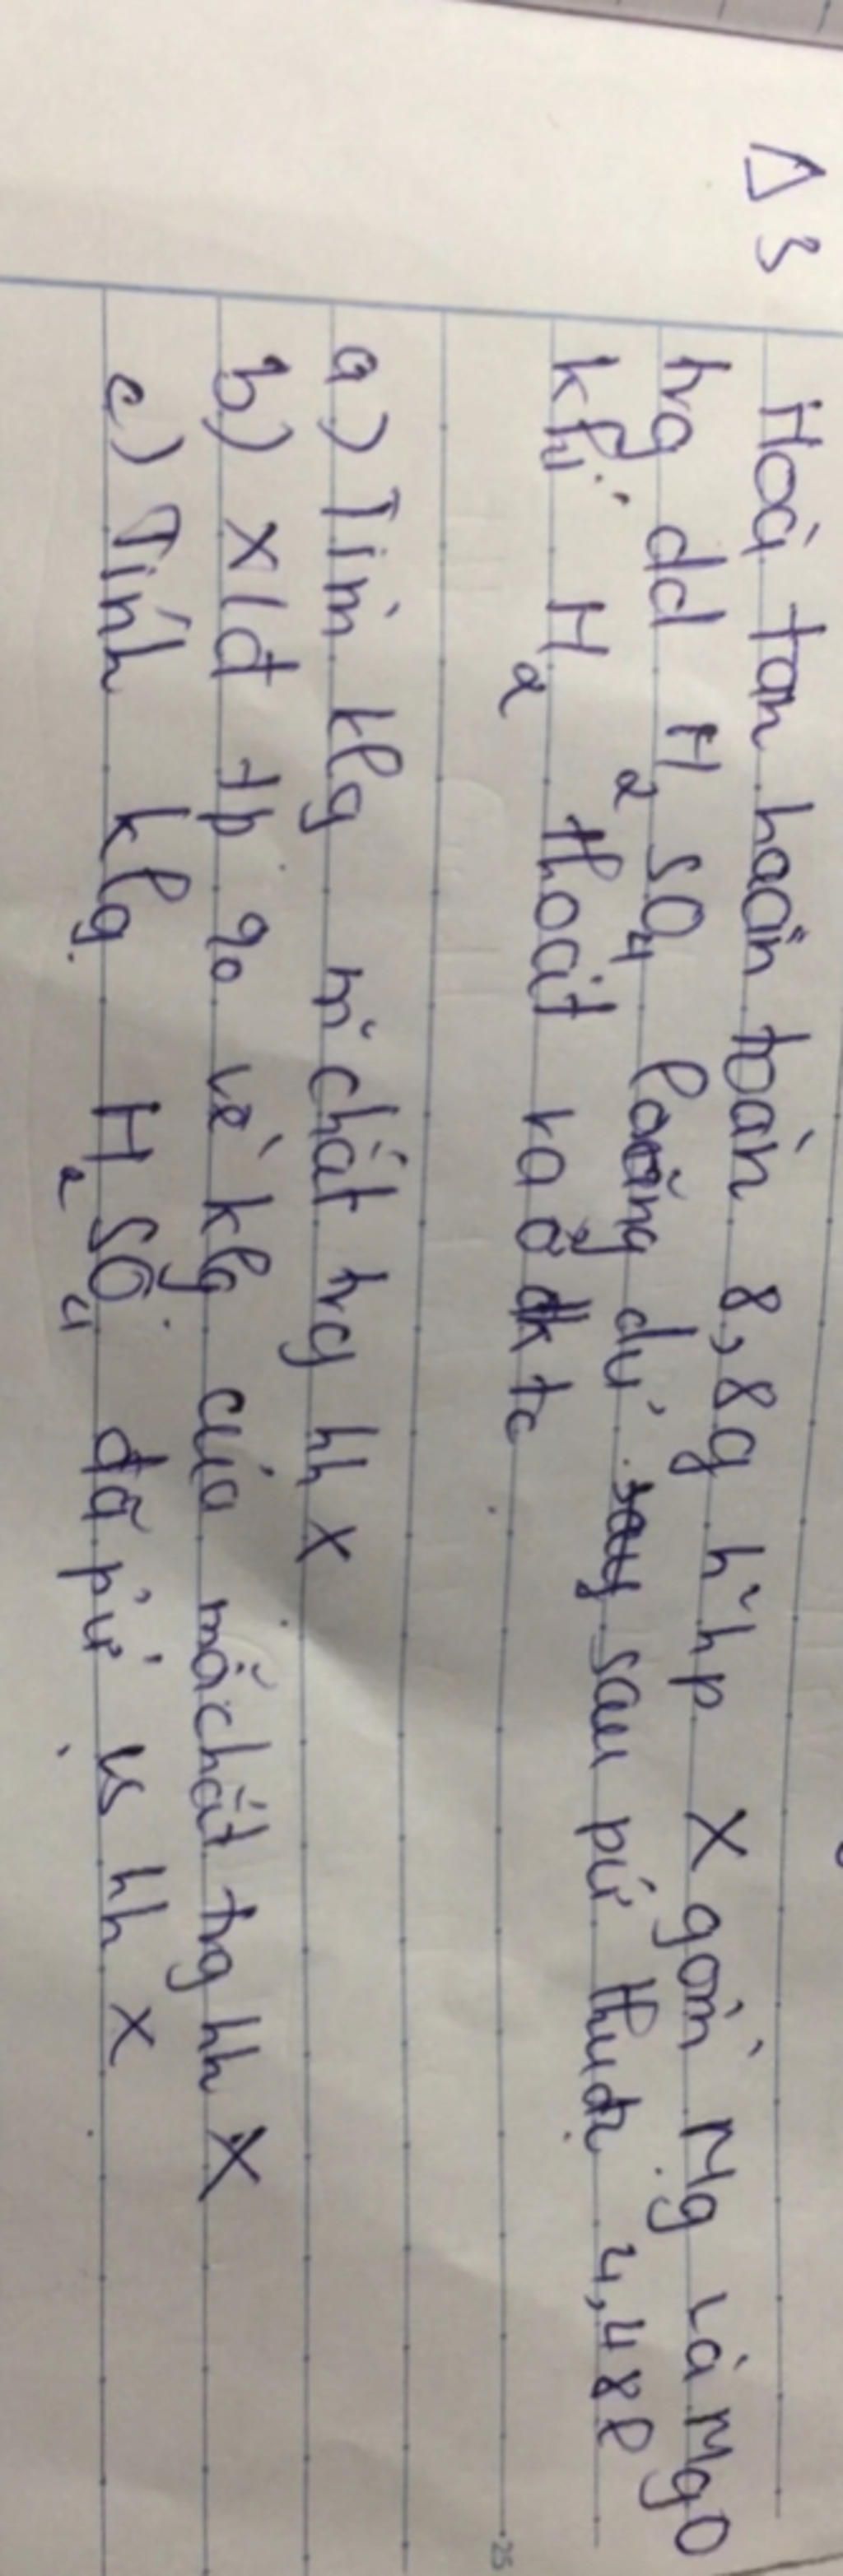 Δ 3
Hoà tan hoàn toàn 8,8g h~hp X gồm Mg và MgO
trg dd H2SO4 loãng dư sau pứ thuđc 4,48l
khí H2 thoát ra ở đktc
a) Tìm klg m~chất trg hh X
b) Xđ tp % về klg của mỗchất trg hh X
c) Tính klg H2SO4 đã pứ vs hh X
25